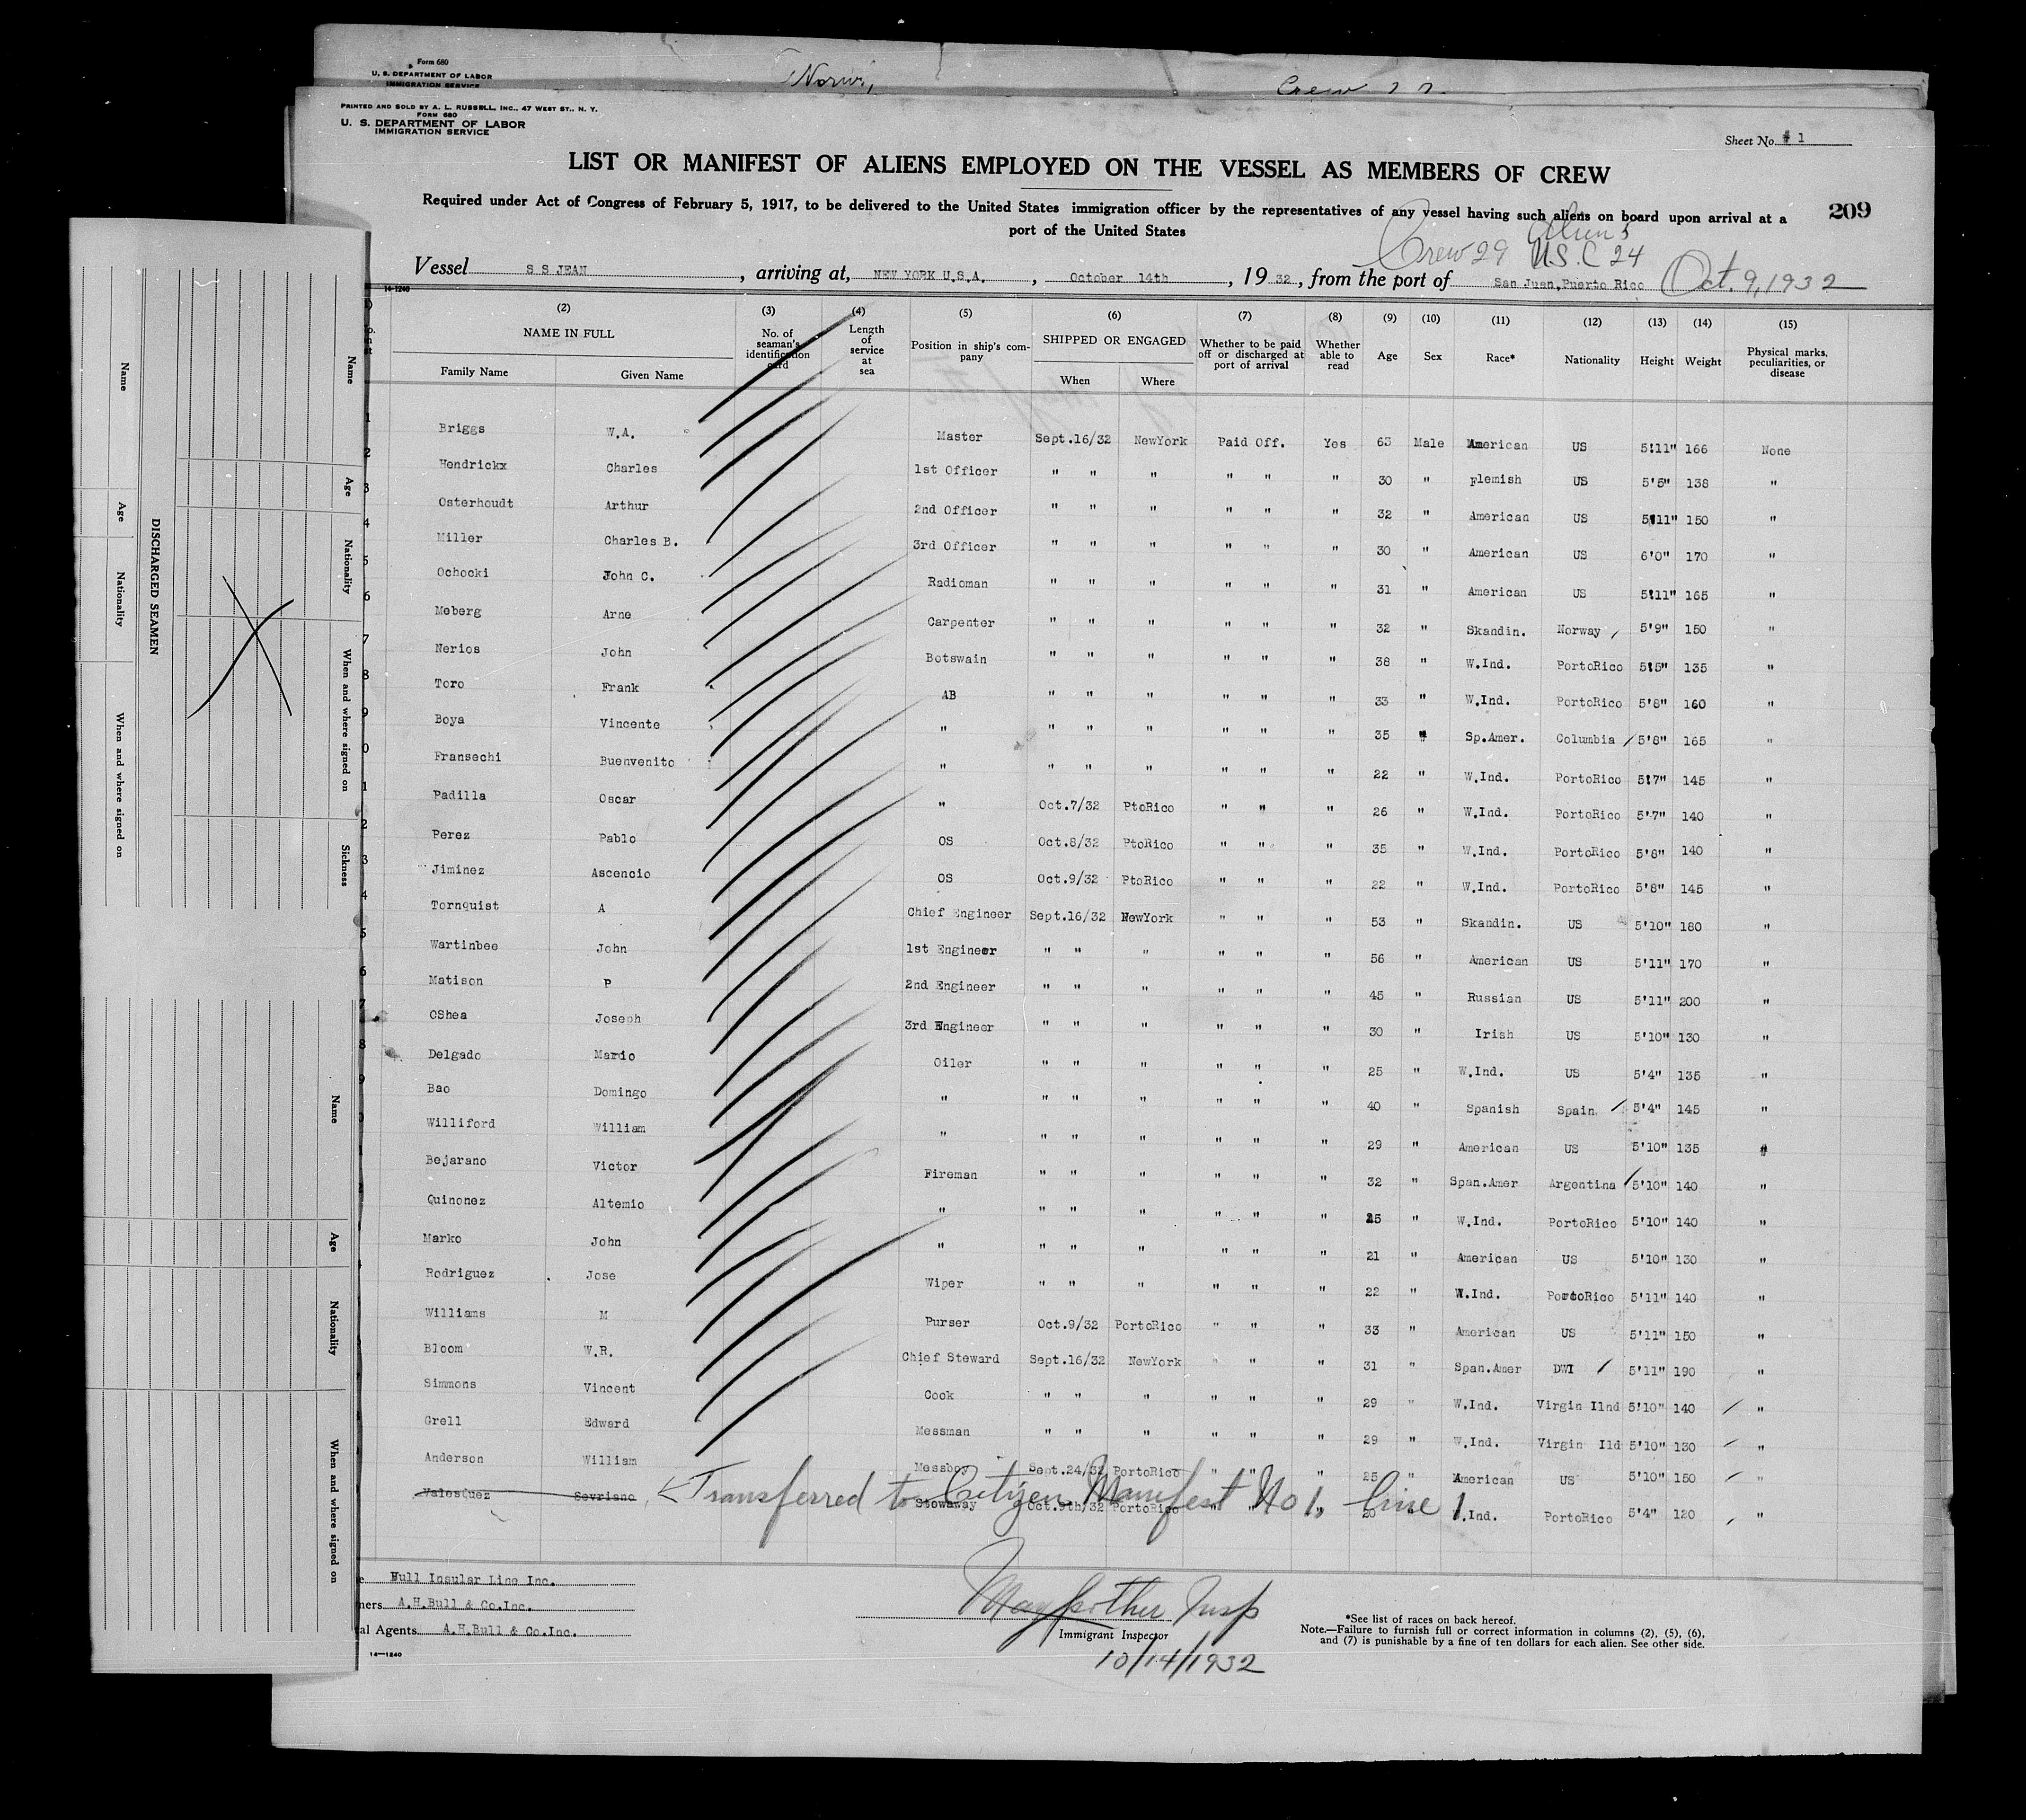 Form 680
U. S. DEPARTMENT OF LABOR
IMMIGRATION SERVICE
Crew
PRINTED AND SOLD BY A. L. RUSSELL, INC., 47 WEST ST., N. Y.
FORM 680
U. S. DEPARTMENT OF LABOR
IMMIGRATION SERVICE
Sheet No. # 1
LIST OR MANIFEST OF ALIENS EMPLOYED ON THE VESSEL AS MEMBERS OF CREW
Required under Act of Congress of February 5, 1917, to be delivered to the United States immigration officer by the representatives of any vessel having such aliens on board upon arrival at a
port of the United States
209
Crew 29 Aliens 5
U.S.C 24
Vessel S S JEAN, arriving at, NEW YORK U.S.A., October 14th, 19 32, from the port of San Juan,Puerto Rico Oct. 9, 1932
14-1240
(2) (3) (4) (5) (6) (7) (8) (9) (10) (11) (12) (13) (14) (15)
NAME IN FULL No. of seaman's identification card Length of service at sea Position in ship's company SHIPPED OR ENGAGED Whether to be paid off or discharged at port of arrival Whether able to read Age Sex Race* Nationality Height Weight Physical marks, peculiarities, or disease
Family Name Given Name When Where
1 Briggs W.A. Master Sept.16/32 NewYork Paid Off. Yes 63 Male American US 5'11" 166 None
2 Hendrickx Charles 1st Officer " " " " " " 30 " Flemish US 5'5" 138 "
3 Osterhoudt Arthur 2nd Officer " " " " " " 32 " American US 5'11" 150 "
4 Miller Charles B. 3rd Officer " " " " " " 30 " American US 6'0" 170 "
5 Ochocki John C. Radioman " " " " " " 31 " American US 5'11" 165 "
6 Meberg Arne Carpenter " " " " " " 32 " Skandin. Norway 5'9" 150 "
7 Nerios John Botswain " " " " " " 38 " W.Ind. PortoRico 5'5" 135 "
8 Toro Frank AB " " " " " " 33 " W.Ind. PortoRico 5'8" 160 "
9 Boya Vincente " " " " " " " 35 " Sp.Amer. Columbia 5'8" 165 "
0 Fransechi Buenvenito " " " " " " " 22 " W.Ind. PortoRico 5'7" 145 "
1 Padilla Oscar " Oct.7/32 PtoRico " " " 26 " W.Ind. PortoRico 5'7" 140 "
2 Perez Pablo OS Oct.8/32 PtoRico " " " 35 " W.Ind. PortoRico 5'8" 140 "
3 Jiminez Ascencio OS Oct.9/32 PtoRico " " " 22 " W.Ind. PortoRico 5'8" 145 "
4 Tornquist A Chief Engineer Sept.16/32 NewYork " " " 53 " Skandin. US 5'10" 180 "
5 Wartinbee John 1st Engineer " " " " " " 56 " American US 5'11" 170 "
6 Matison P 2nd Engineer " " " " " " 45 " Russian US 5'11" 200 "
7 OShea Joseph 3rd Engineer " " " " " " 30 " Irish US 5'10" 130 "
8 Delgado Mario Oiler " " " " " " 25 " W.Ind. US 5'4" 135 "
9 Bao Domingo " " " " " " " 40 " Spanish Spain 5'4" 145 "
Williford William " " " " " " " 29 " American US 5'10" 135 "
Bejarano Victor Fireman " " " " " " 32 " Span.Amer Argentina 5'10" 140 "
Quinonez Altemio " " " " " " " 25 " W.Ind. PortoRico 5'10" 140 "
Marko John " " " " " " " 21 " American US 5'10" 130 "
Rodriguez Jose Wiper " " " " " " 22 " W.Ind. PortoRico 5'11" 140 "
Williams M Purser Oct.9/32 PortoRico " " " 33 " American US 5'11" 150 "
Bloom W.R. Chief Steward Sept.16/32 NewYork " " " 31 " Span.Amer DWI 5'11" 190 "
Simmons Vincent Cook " " " " " " 29 " W.Ind. Virgin Ilnd 5'10" 140 "
Grell Edward Messman " " " " " " 29 " W.Ind. Virgin Ild 5'10" 130 "
Anderson William Messboy Sept.24/32 PortoRico " " " 25 " American US 5'10" 150 "
Valesquez Sevriano Stowaway Oct.9th/32 PortoRico " " 20 W.Ind. PortoRico 5'4" 120 "
Transferred to Citizen Manifest No 1, line 1
Bull Insular Line Inc.
ners A.H.Bull & Co.Inc.
al Agents A.H.Bull & Co.Inc.
14-1240
Insp
Immigrant Inspector
10/14/1932
*See list of races on back hereof.
Note.—Failure to furnish full or correct information in columns (2), (5), (6),
and (7) is punishable by a fine of ten dollars for each alien. See other side.
DISCHARGED SEAMEN
Name Age Nationality When and where signed on
Name Age Nationality When and where signed on Sickness
Name Age Nationality When and where signed on